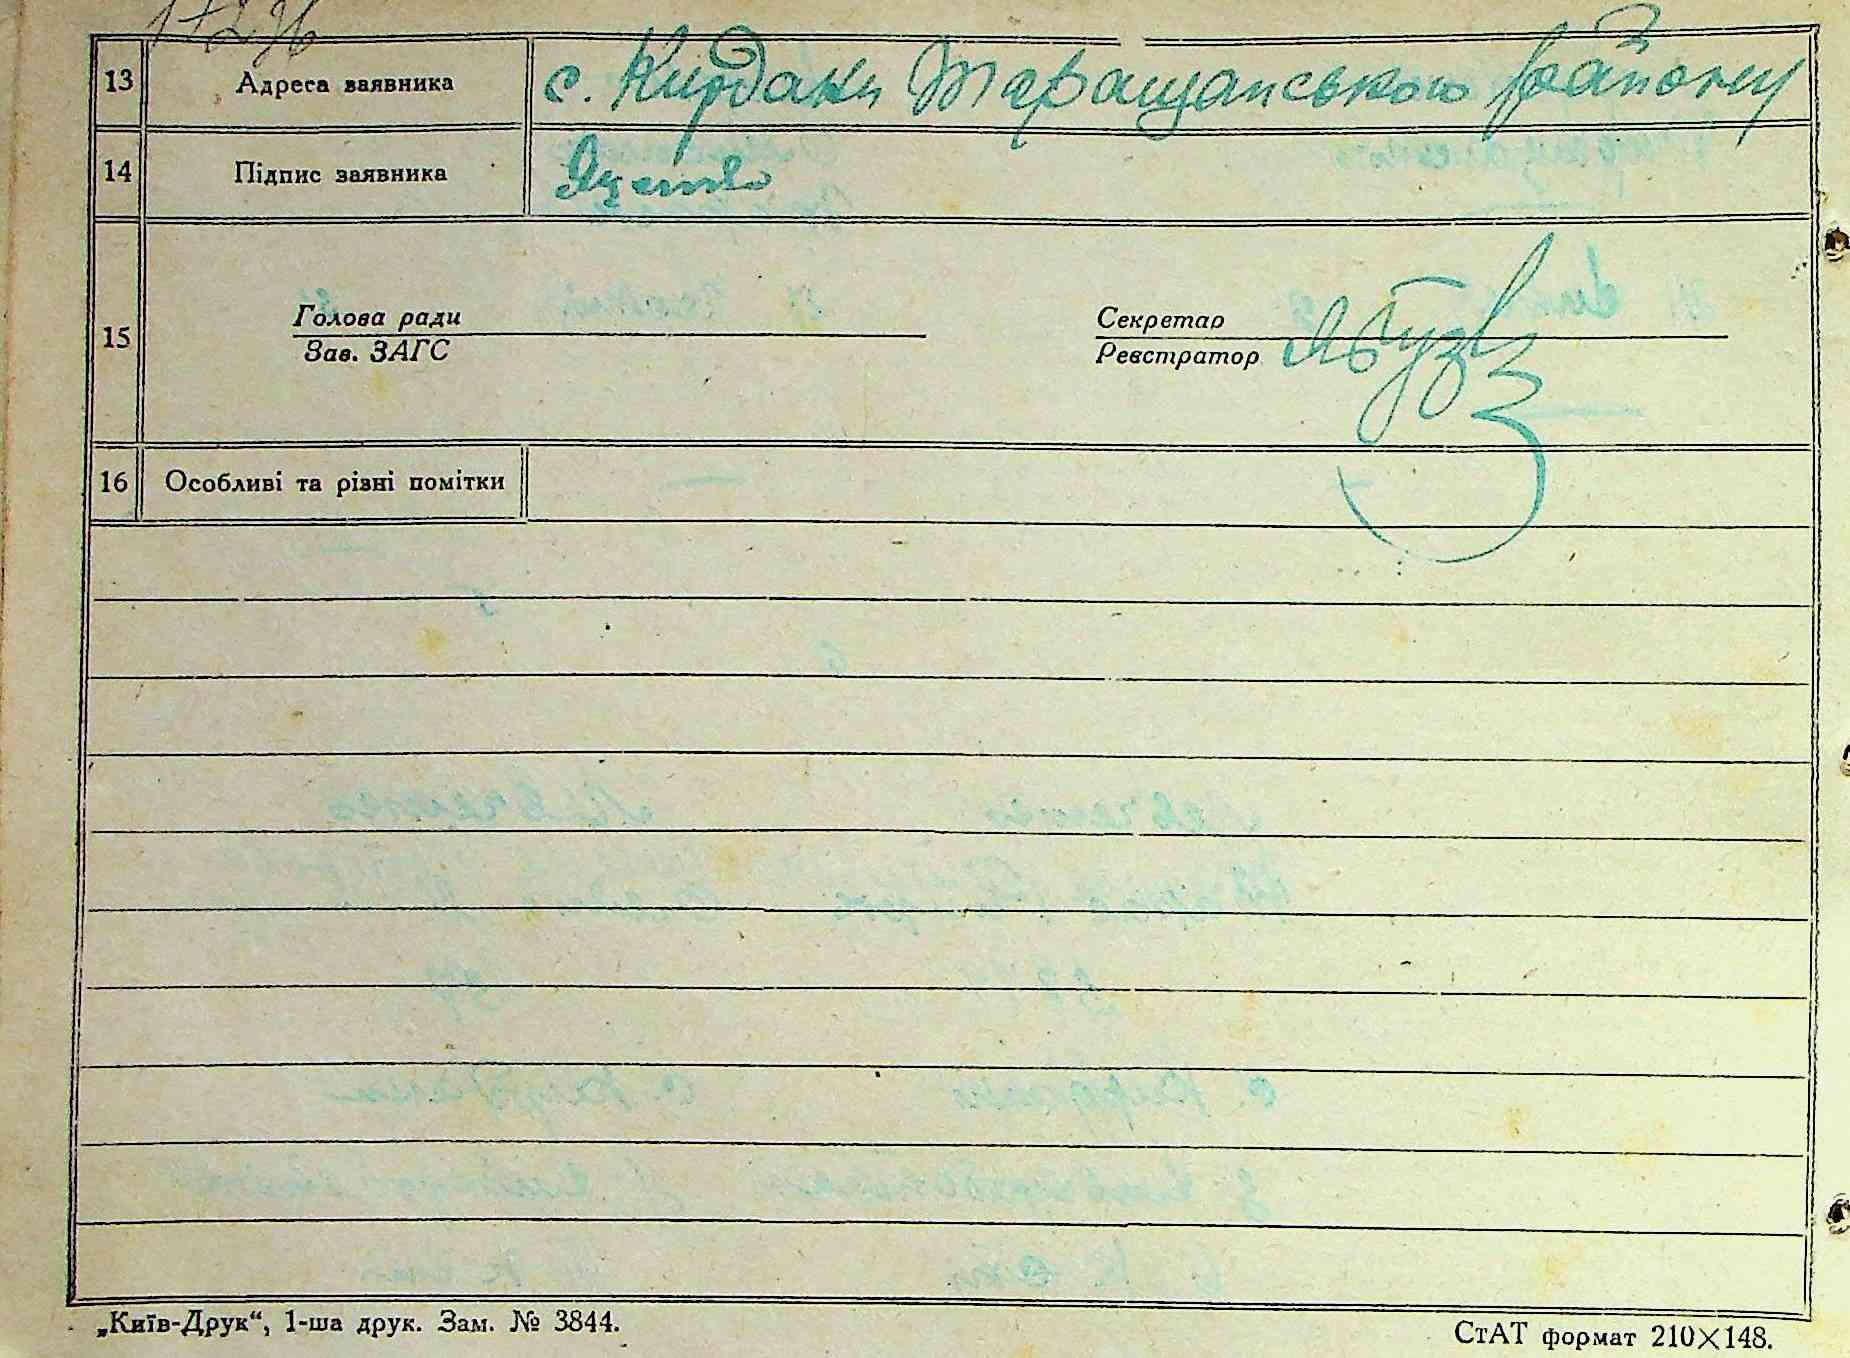 17296
13 Адреса заявника с. Кирдани Таращанського району
14 Підпис заявника Яценко
Голова ради Секретар
15
Зав. ЗАГС Реєстратор
16 Особливі та різні помітки —
„Київ-Друк“, 1-ша друк. Зам. № 3844.
СтАТ формат 210×148.